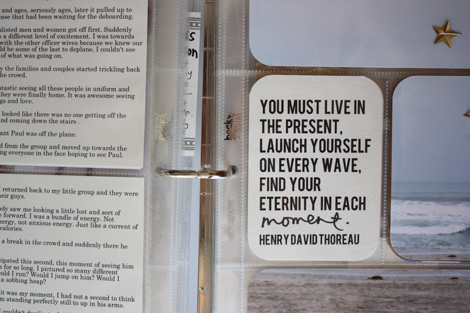 and ages, seriously ages, later it pulled up to
case that had been waiting for the deboarding.
alisted men and women got off first. Suddenly
s a different level of excitement. I was towards
with the other officer wives because we knew our
ld be some of the last to deplane. I couldn't see
of what was going on.
y the families and couples started trickling back
he crowd.
ntastic seeing all these people in uniform and
hey were finally home. It was awesome seeing
gs and love.
looked like there was no one getting off the
nd coming down the stairs .
ant Paul was off the plane.
d from the group and moved up towards the
ng everyone in the face hoping to see Paul.
I returned back to my little group and they were
heir guys.
dy saw me looking a little lost and sort of
e forward. I was a bundle of energy. Not
ergy, not anxious energy. Just like a current of
calories.
a break in the crowd and suddenly there he
ipated this second, this moment of seeing him
n for so long. I pictured so many different
ould I run? Would I jump on him? Would I
a sobbing heap?
it was my moment, I had not a second to think
m standing perfectly still to up in his arms.
YOU MUST LIVE IN
THE PRESENT,
LAUNCH YOURSELF
ON EVERY WAVE,
FIND YOUR
ETERNITY IN EACH
moment.
HENRY DAVID THOREAU